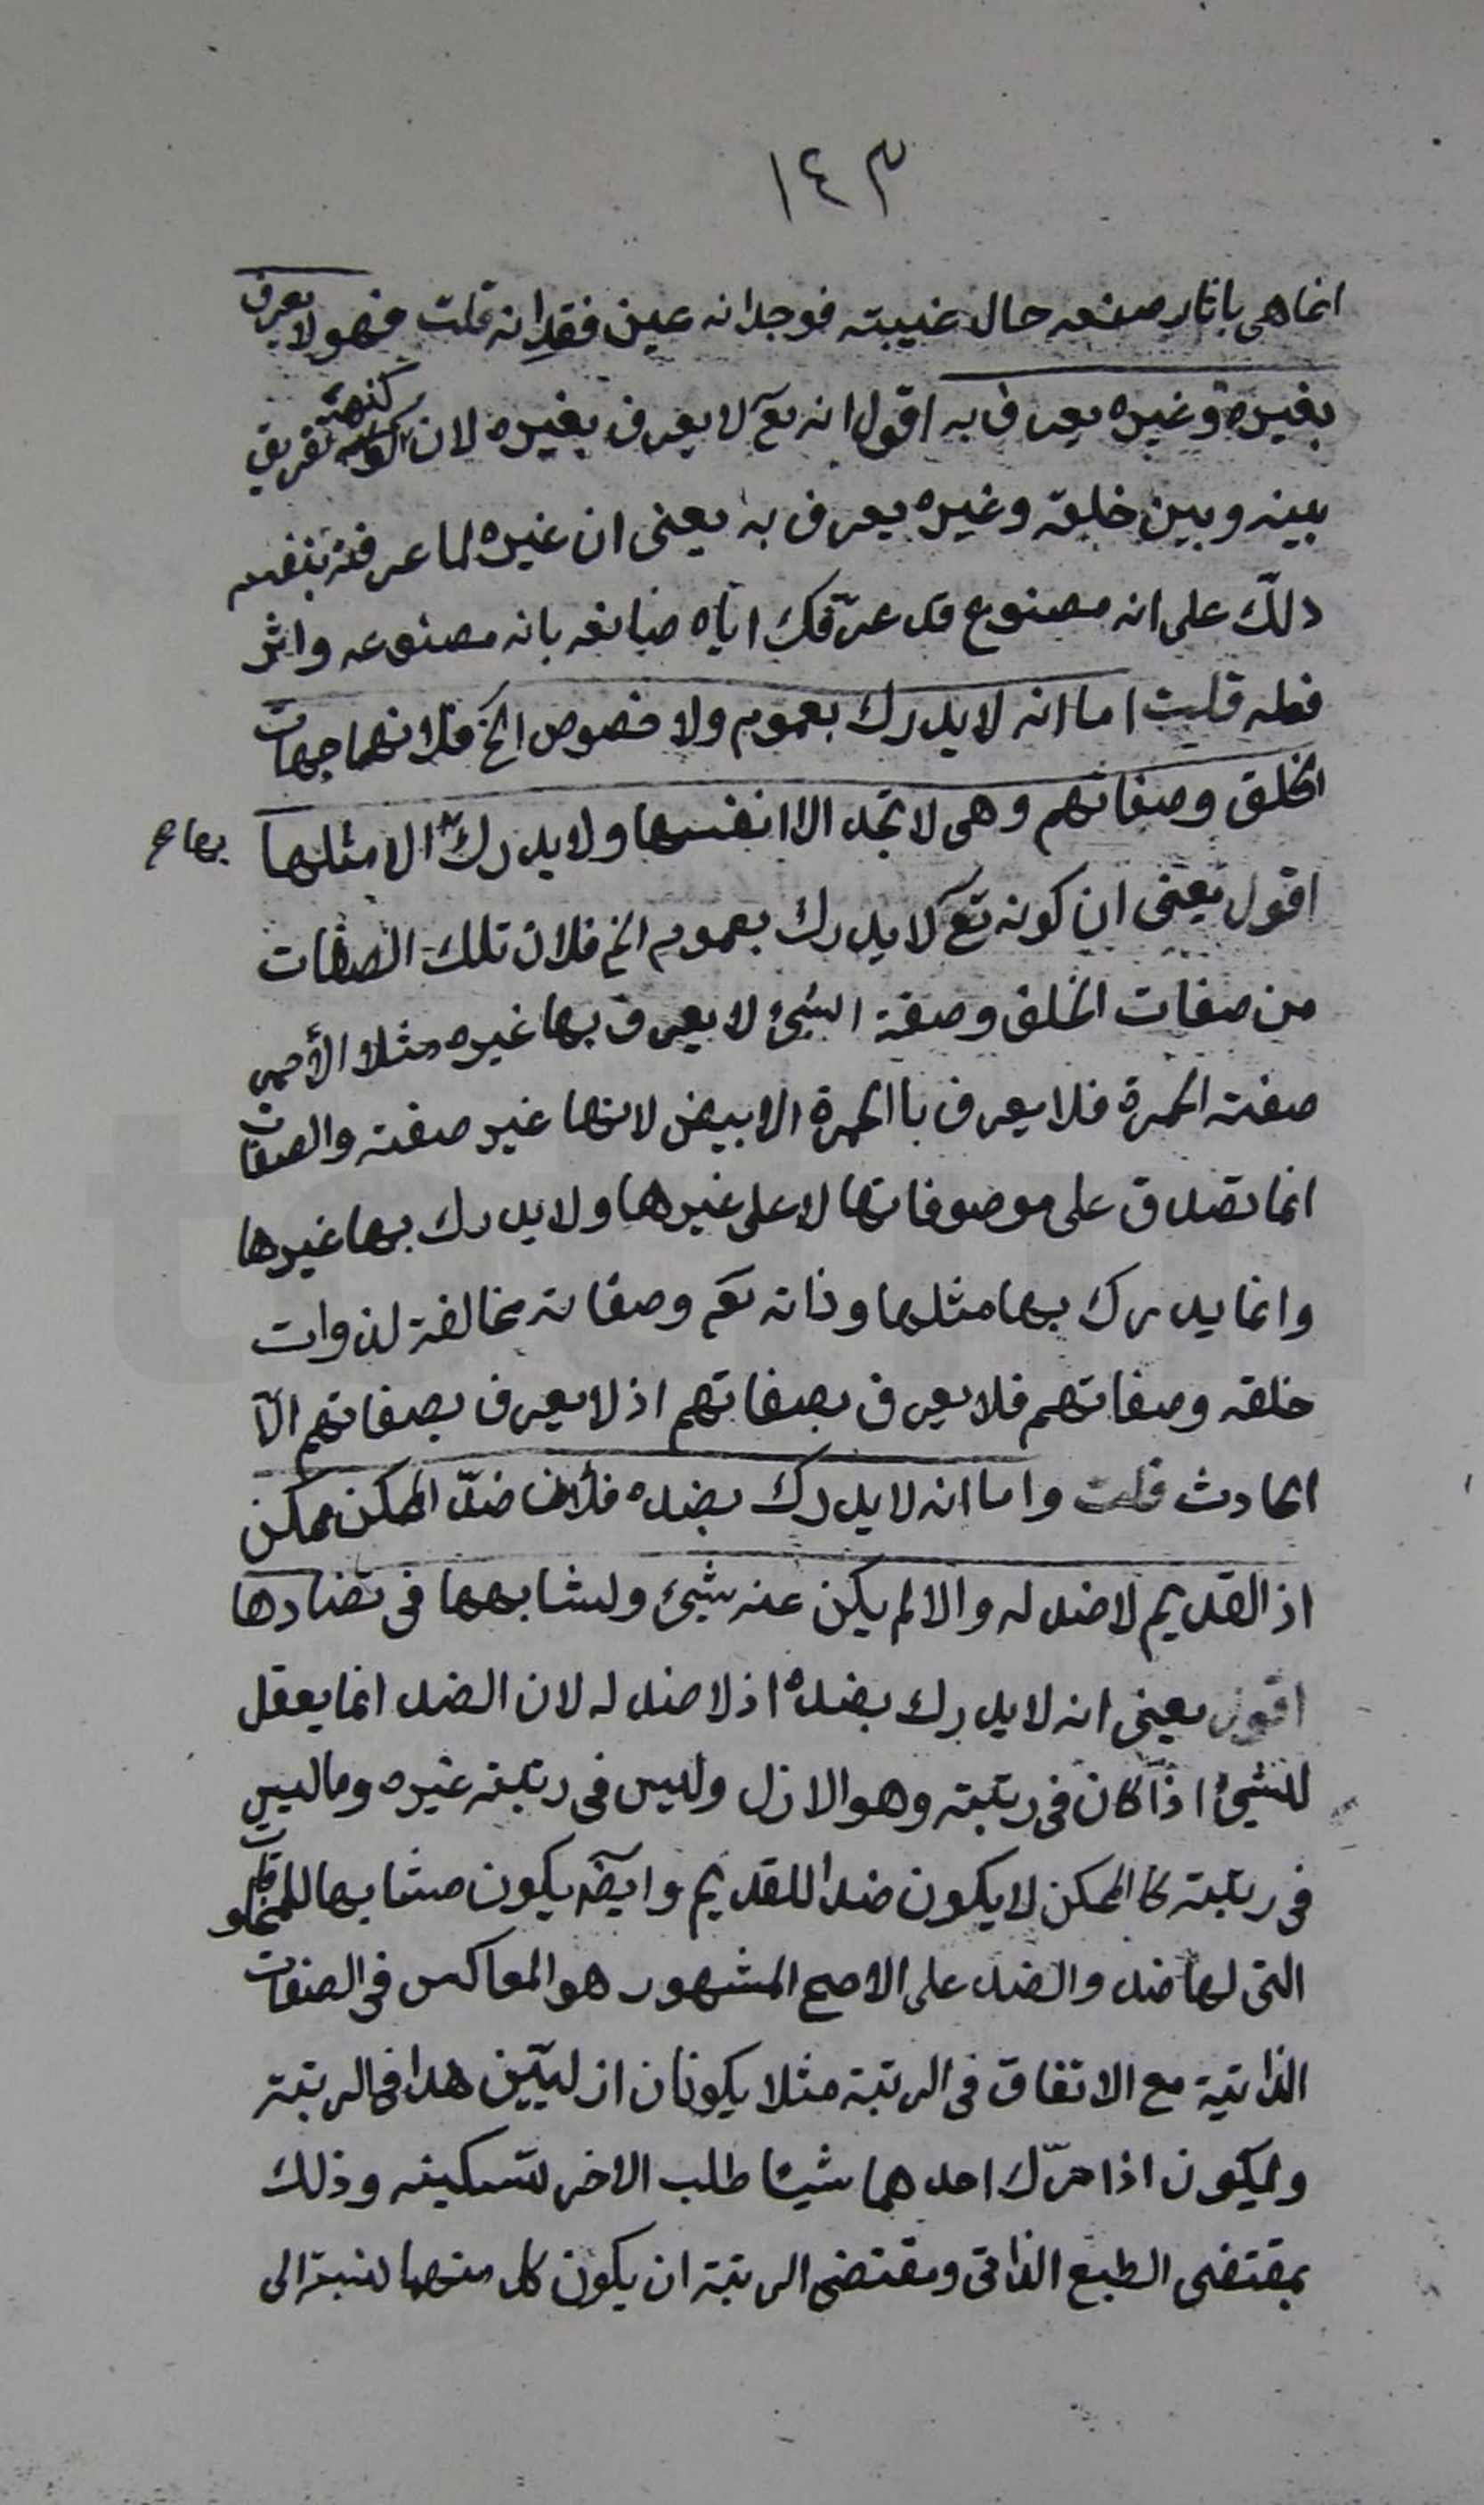 ١٤٣
انما هى باثار صنعه حال غيبته فوجدانه عين فقدانه قلت فهو لا يعرف
بغيره وغيره يعرف به اقول انه تع لا يعرف بغيره لان كنهه تفريق
بينه وبين خلقه وغيره يعرف به يعنى ان غيره لما عرفته بنفسه
دلّك على انه مصنوع قد عرّفك اياه صانعه بانه مصنوعه واثر
فعله قلت اما انه لا يدرك بعموم ولا خصوص الخ فلانهما جهات
الخلق وصفاتهم وهى لا تحد الا انفسها ولا يدرك الا مثلها
بها ع
اقول يعنى ان كونه تع لا يدرك بعموم الخ فلان تلك الصفات
من صفات الخلق وصفة الشئ لا يعرف بها غيره مثلا الأحمر
صفته الحمرة فلا يعرف باالحمرة الابيض لانها غير صفته والصفات
انما تصدق على موصوفاتها لا على غيرها ولا يدرك بها غيرها
وانما يدرك بها مثلها وذاته تع وصفاته مخالفة لذوات
خلقه وصفاتهم فلا يعرف بصفاتهم اذ لا يعرف بصفاتهم الّا
الحادث قلت واما انه لا يدرك بضده فلان ضدّ الممكن ممكن
اذ القديم لا ضد له والا لم يكن عنه شئ ولشابهها فى تضادها
اقول يعنى انه لا يدرك بضده اذ لا ضد له لان الضد انما يعقل
للشئ اذا كان فى رتبته وهو الازل وليس فى رتبته غيره وما ليس
فى رتبته كالممكن لا يكون ضدا للقديم وايضه يكون مشابها للمخلوقات
التى لها ضد والضد على الاصح المشهور هو المعاكس فى الصفات
الذاتية مع الاتفاق فى الرتبة مثلا يكونان ازليّين هذا فى الرتبة
وليكون اذا حرّك احدهما شيئا طلب الاخر تسكينه وذلك
بمقتضى الطبع الذاتى ومقتضى الرتبة ان يكون كل منهما نسبته الى